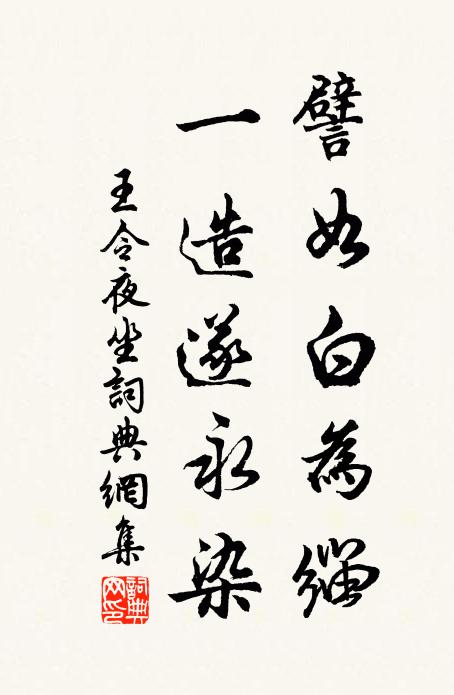 譬如白為緇
一造遂永染
王令夜坐詞典網集
詞典网印